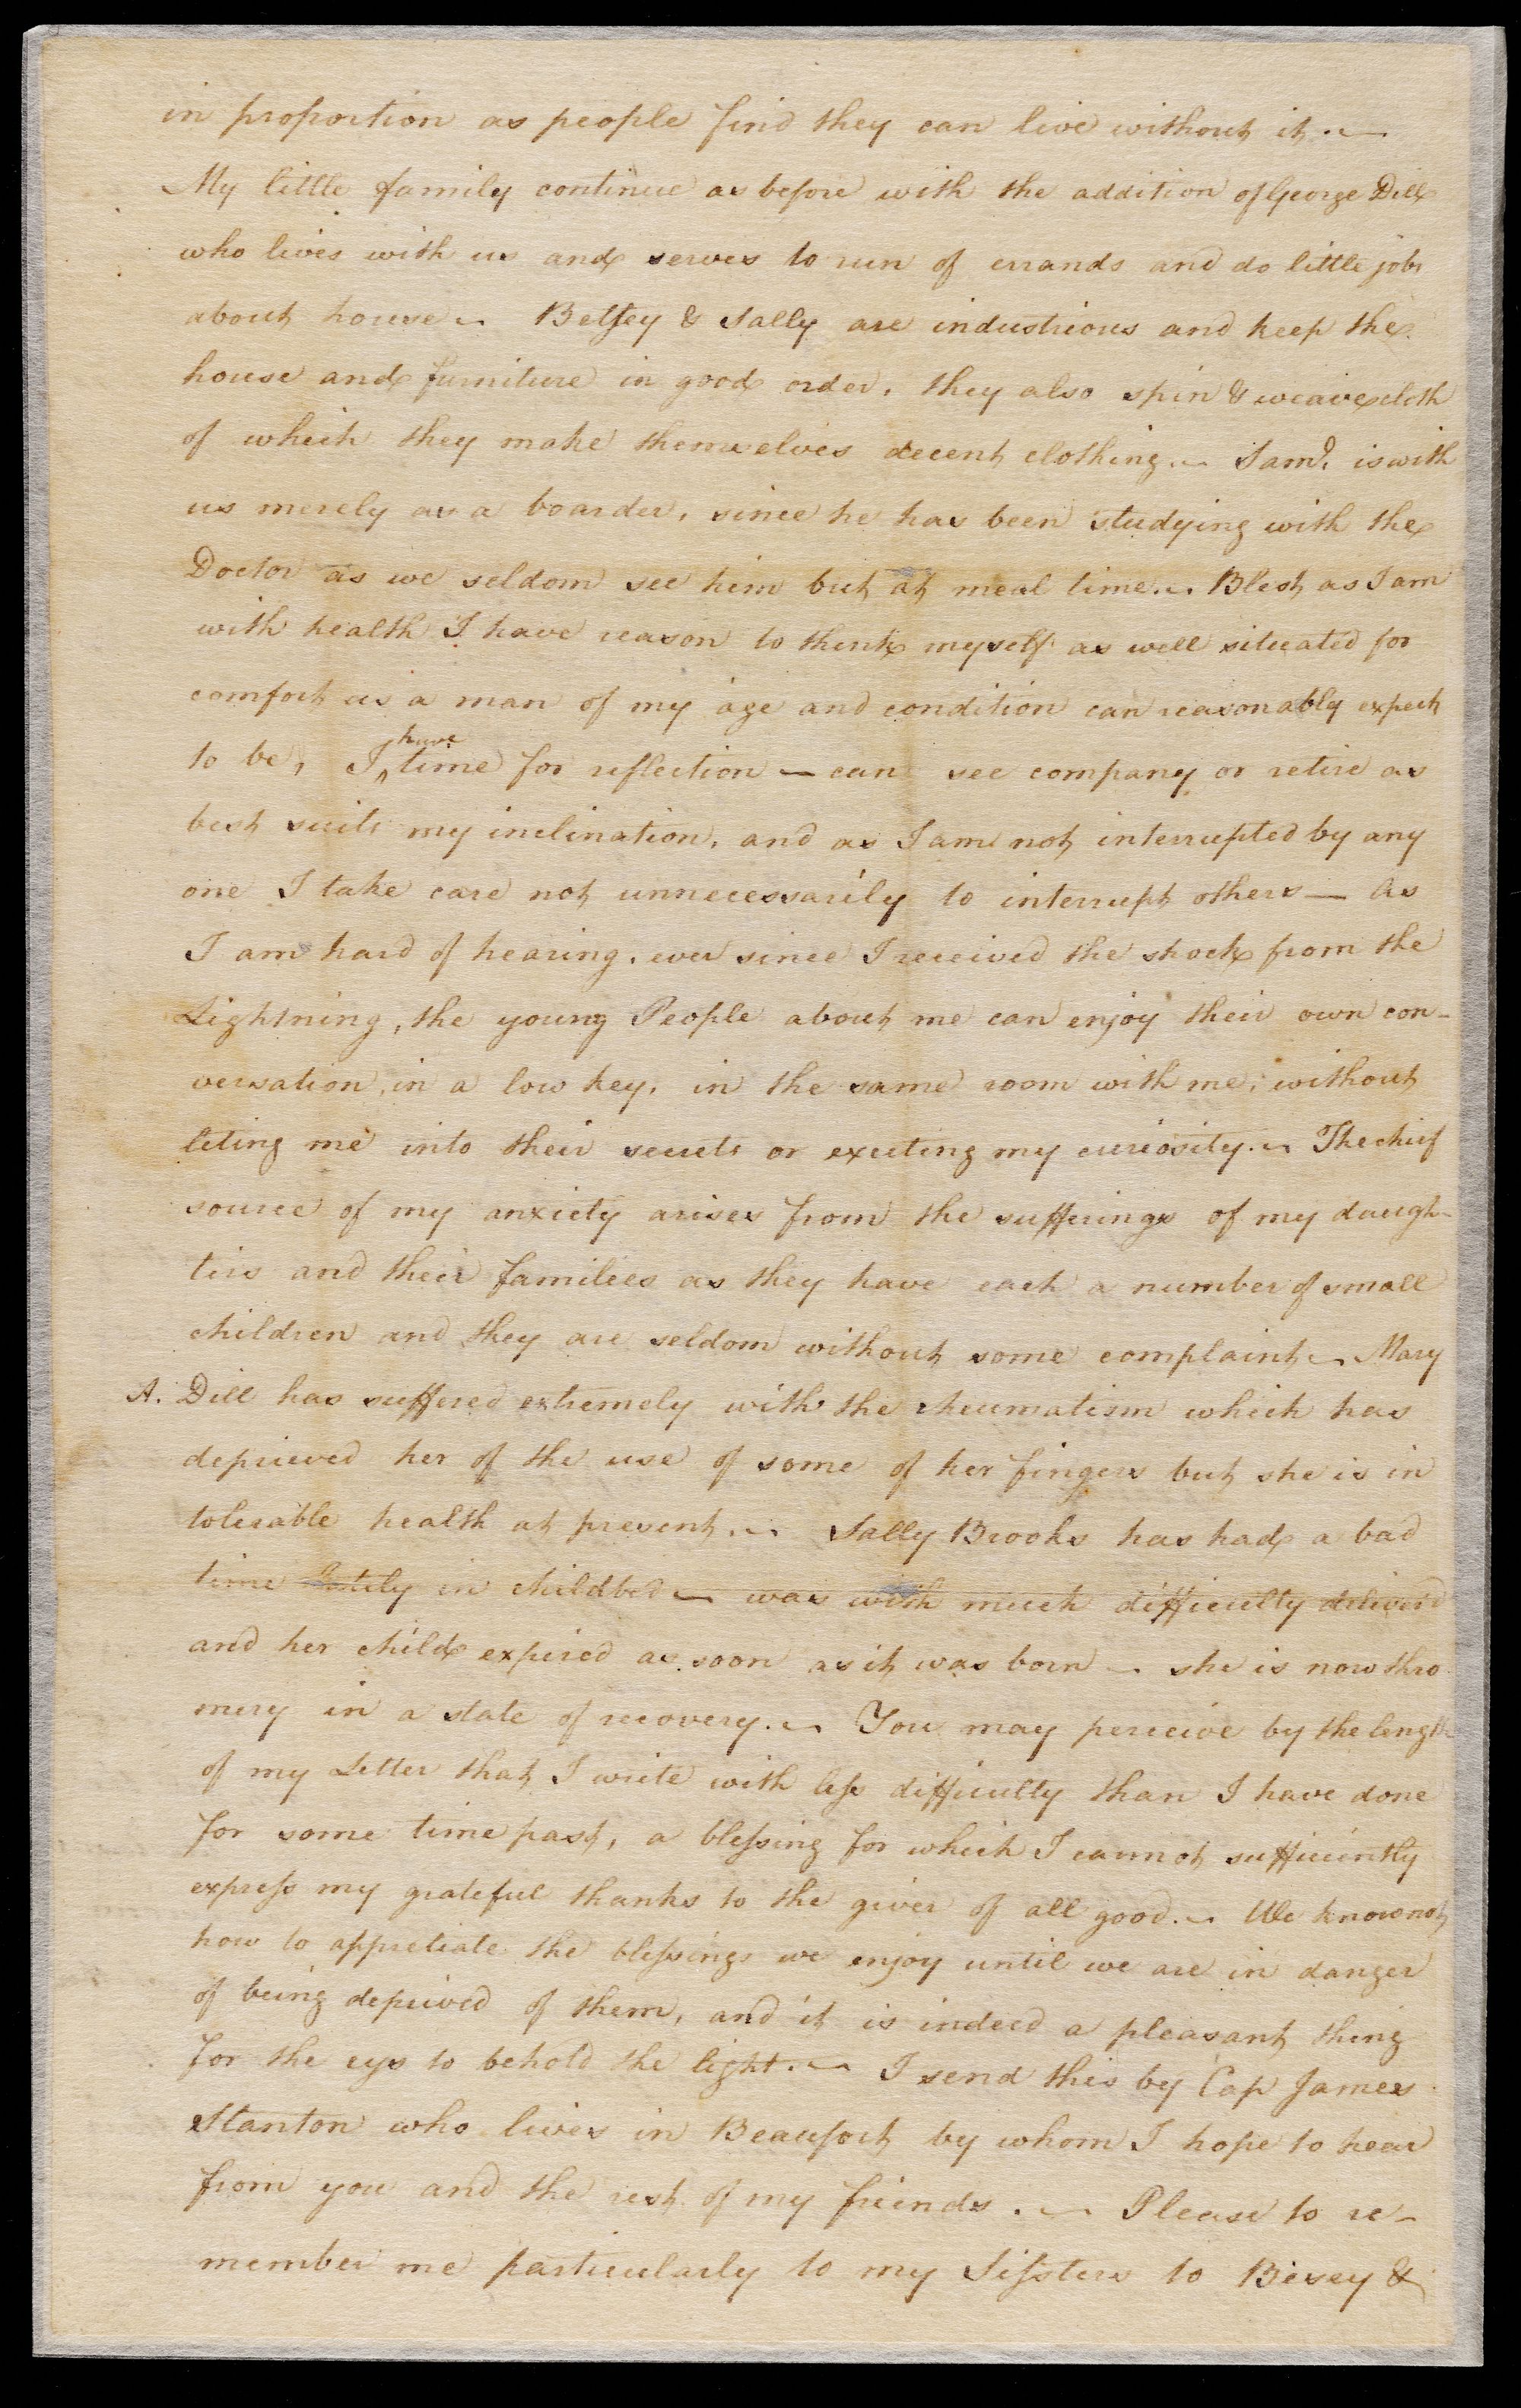 in proportion as people find they can live without it. —
My little family continue as before with the addition of George Dill
who lives with us and serves to run of errands and do little jobs
about house — Betsey & Sally are industrious and keep the
house and furniture in good order, they also spin & weave cloth
of which they make themselves decent clothing. — Saml. is with
us merely as a boarder, since he has been studying with the
Doctor as we seldom see him but at meal time. — Blest as I am
with health I have reason to think myself as well situated for
comfort as a man of my age and condition can reasonably expect
to be, I ^have time for reflection — can see company or retire as
best suits my inclination, and as I am not interrupted by any
one I take care not unnecessarily to interrupt others — As
I am hard of hearing, ever since I received the shock from the
Lightning, the young People about me can enjoy their own con-
versation, in a low key, in the same room with me, without
leting me into their secrets or exciting my curiosity. — The chief
source of my anxiety arises from the sufferings of my daugh-
ters and their families as they have each a number of small
children and they are seldom without some complaint — Mary
A. Dill has suffered extremely with the rheumatism which has
deprieved her of the use of some of her fingers but she is in
tolerable health at present. — Sally Brooks has had a bad
time lately in childbed — was with much difficulty deliverd
and her child expired as soon as it was born — she is now thro
mercy in a state of recovery. — You may perceive by the length
of my Letter that I write with less difficulty than I have done
for some time past, a blessing for which I cannot sufficiently
express my grateful thanks to the giver of all good. — We know not
how to appretiate the blessings we enjoy until we are in danger
of being deprived of them, and it is indeed a pleasant thing
for the eys to behold the light. — I send this by Cap James
Stanton who lives in Beaufort by whom I hope to hear
from you and the rest of my friends. — Please to re-
member me particularly to my Sissters to Bixey &